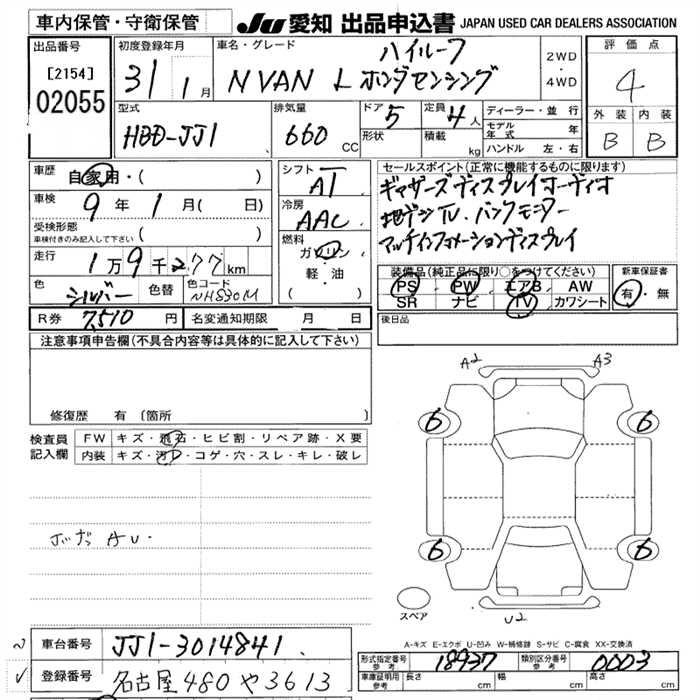 車内保管・守衛保管 JU 愛知 出品申込書 JAPAN USED CAR DEALERS ASSOCIATION
出品番号 初度登録年月 車名・グレード ハイルーフ 2WD・4WD 評価点
[2154]
02055 31 1月 N VAN L ホンダセンシング 4
型式 排気量 ドア 5 定員 4人 ディーラー・並行 外装 内装
HBD-JJ1 660 CC 形状 積載 kg モデル年式 年 B B
ハンドル 左・右
車歴 自家用・( ) シフト AT セールスポイント(正常に機能するものに限ります)
車検 9年 1月( 日) 冷房 AAC ギャザーズディスプレイオーディオ
受検形態 地デジTV. バックモニター
車検付きのみ記入して下さい( ) 燃料 マルチインフォメーションディスプレイ
走行 1万9千277km ガソリン
軽・油
( )
装備品(純正品に限り○をつけてください) 新車保証書
色 シルバー 色替 色コード NH830M PS PW エアB AW 有・無
SR ナビ TV カワシート
R券 7,510円 名変通知期限 月 日 後日品
注意事項申告欄(不具合内容等は具体的に記入して下さい)
修復歴 有 (箇所 )
検査員記入欄 FW キズ・飛石・ヒビ割・リペア跡・X要
内装 キズ・汚レ・コゲ・穴・スレ・キレ・破レ
A2 A3
6 6
AU.
6 6
スペア U2
A-キズ E-エクボ U-凹み W-補修跡 S-サビ C-腐食 XX-交換済
車台番号 JJ1-3014841
型式指定番号 参考 18937 類別区分番号 参考 0003
登録番号 名古屋 480 や 3613
車庫証明用 参考 長さ cm 幅 cm 高さ cm